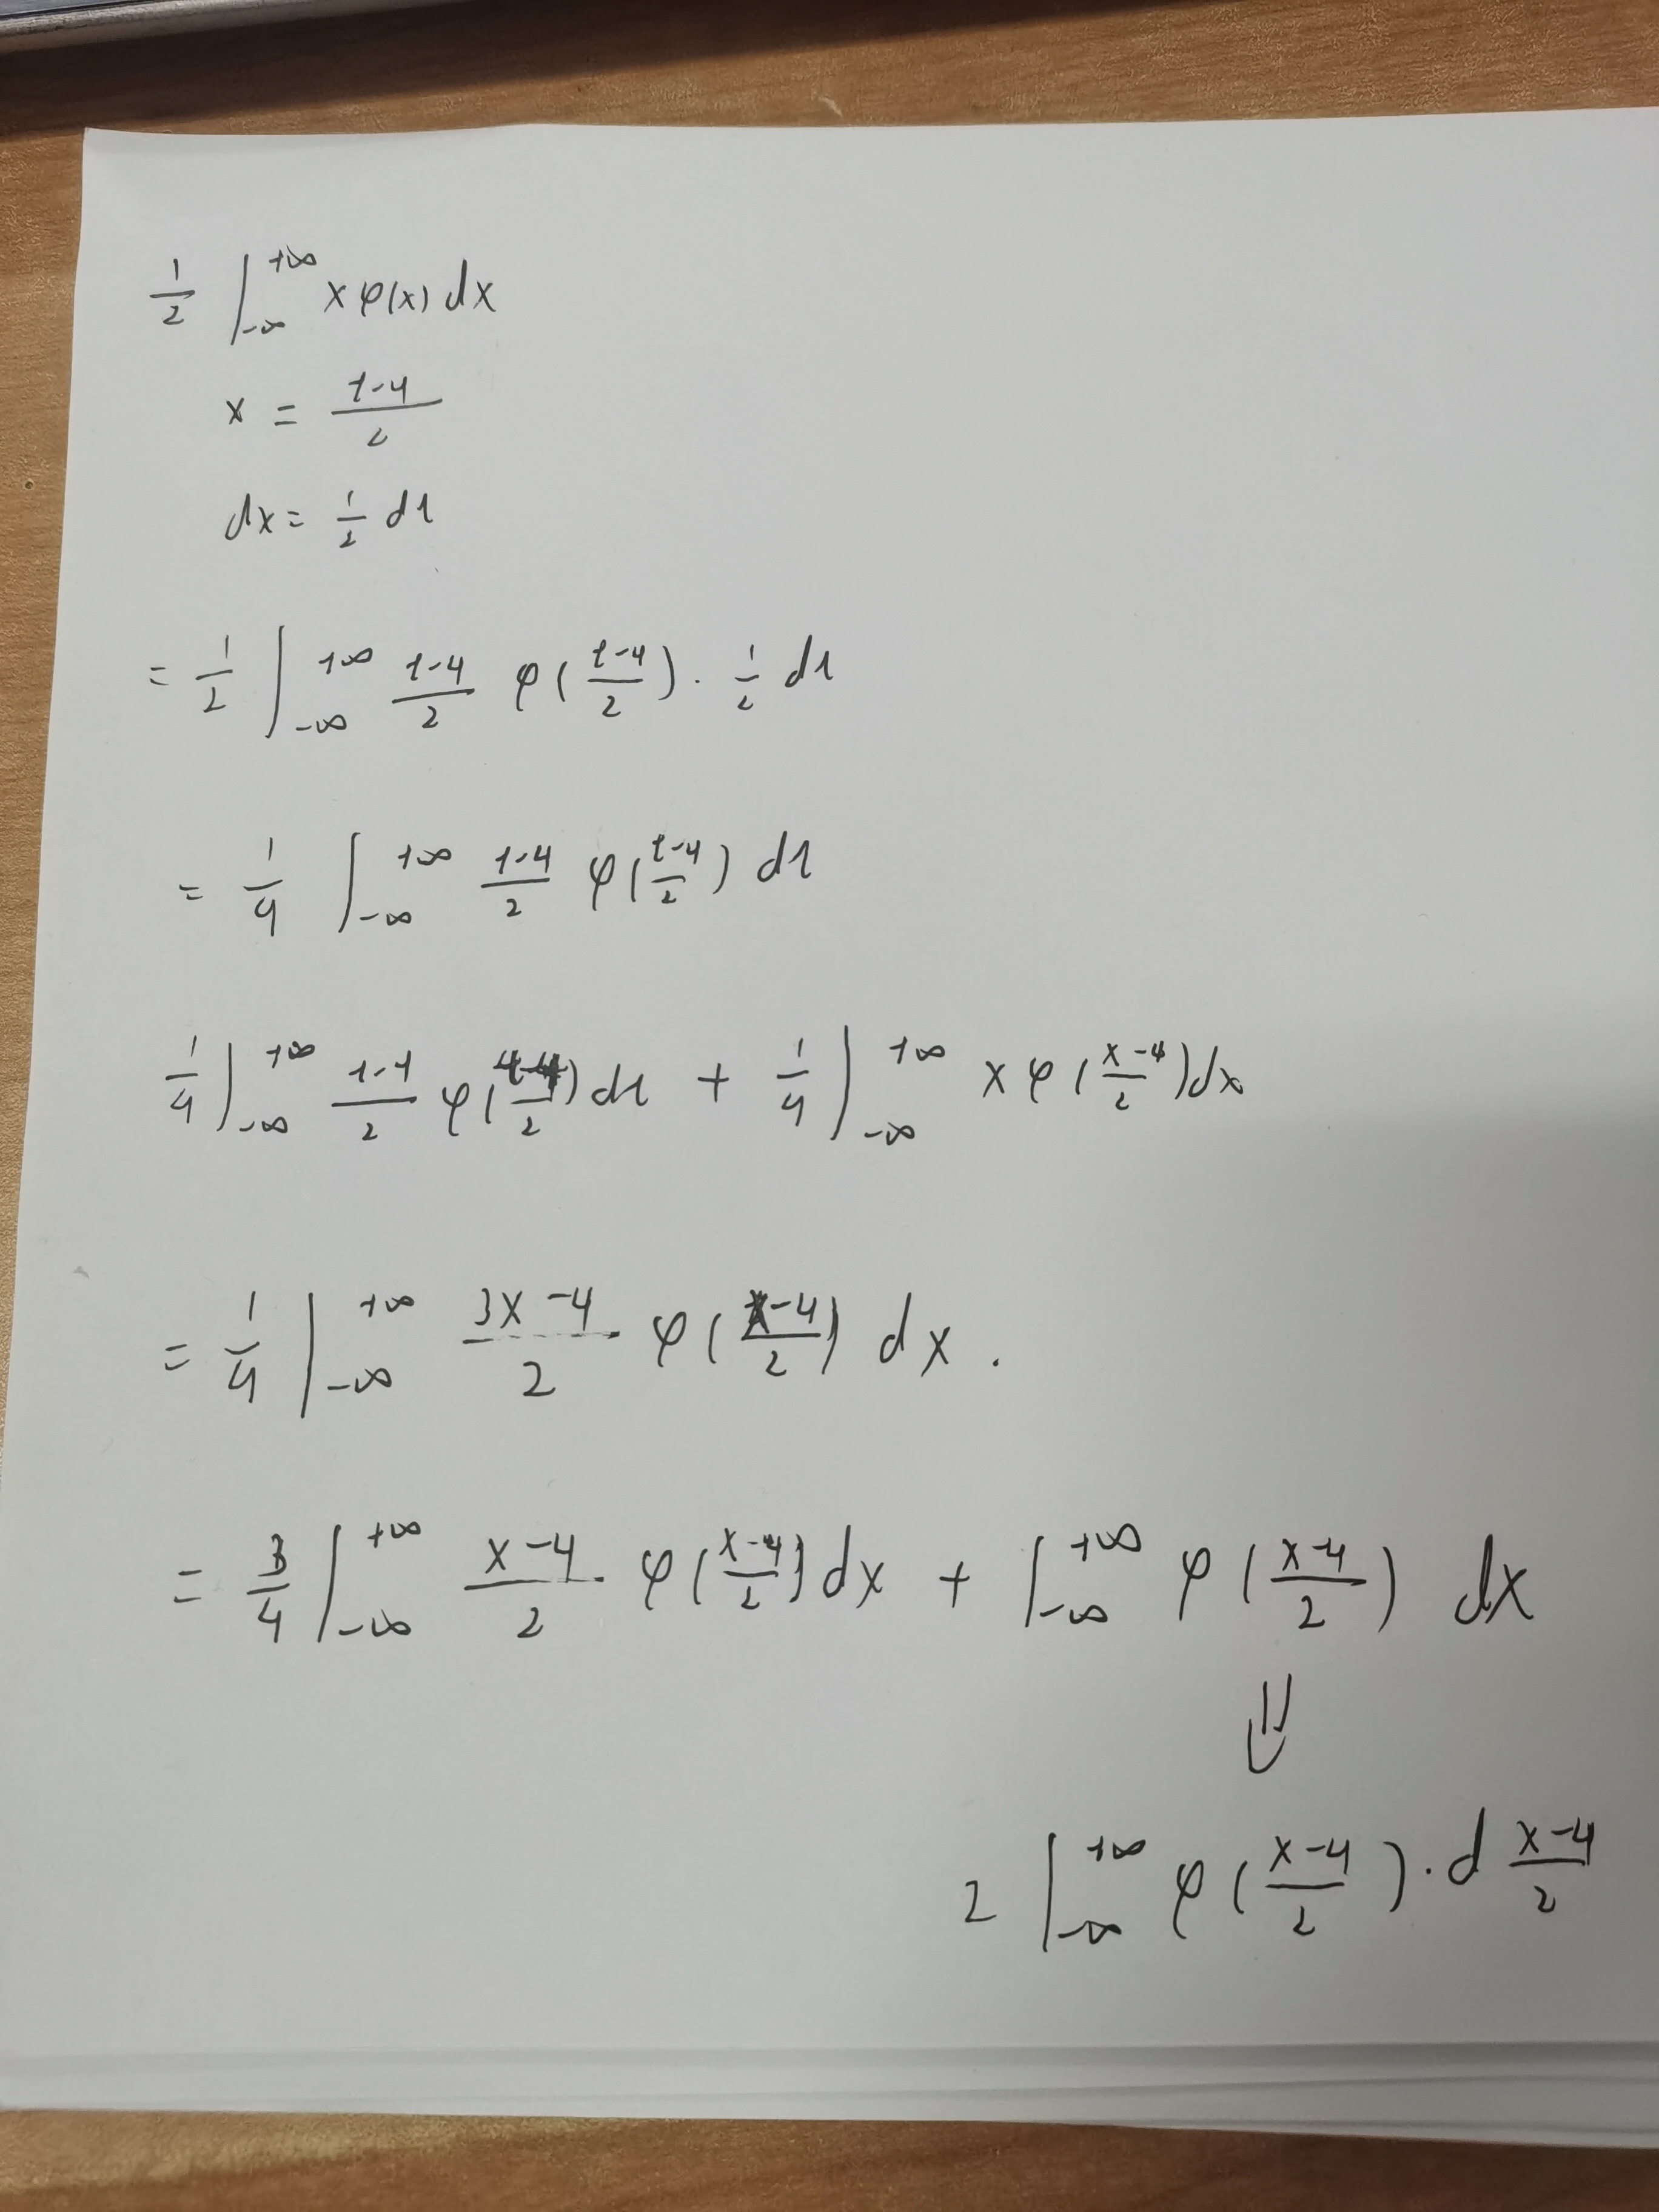 1/2 ∫_{-∞}^{+∞} x φ(x) dx
x = (t-4)/2
dx = 1/2 dt
= 1/2 ∫_{-∞}^{+∞} (t-4)/2 φ((t-4)/2) · 1/2 dt
= 1/4 ∫_{-∞}^{+∞} (t-4)/2 φ((t-4)/2) dt
1/4 ∫_{-∞}^{+∞} (t-4)/2 φ((t-4)/2) dt + 1/4 ∫_{-∞}^{+∞} x φ((x-4)/2) dx
= 1/4 ∫_{-∞}^{+∞} (3x-4)/2 φ((x-4)/2) dx .
= 3/4 ∫_{-∞}^{+∞} (x-4)/2 φ((x-4)/2) dx + ∫_{-∞}^{+∞} φ((x-4)/2) dx
⇓
2 ∫_{-∞}^{+∞} φ((x-4)/2) · d (x-4)/2